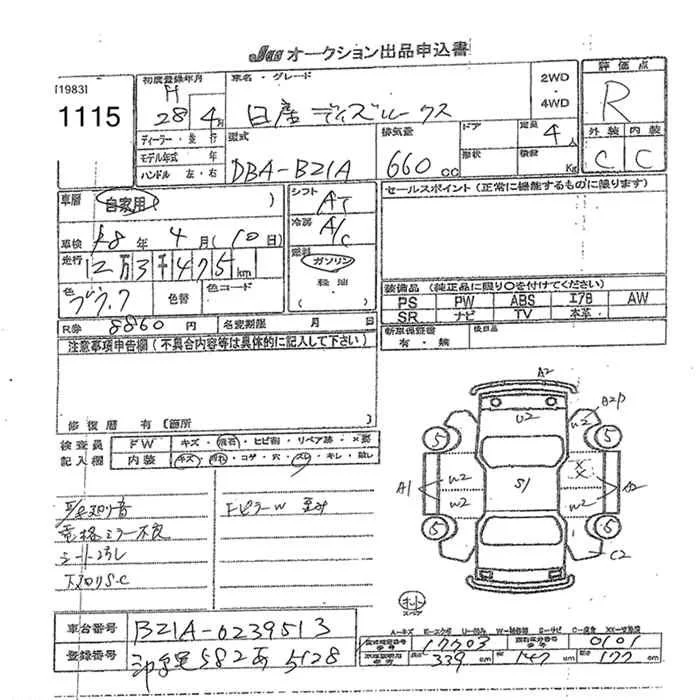 Jas オークション出品申込書
[1983]
1115
初度登録年月
H
28年4月
車名・グレード
日産 デイズルークス
2WD
・
4WD
評価点
R
外装 内装
C C
ディーラー・並行
モデル年式 年
ハンドル 左・右
型式
DBA-B21A
排気量
660 cc
ドア
形状
定員 4人
積載 Kg
車歴 自家用 ( )
車検 28年 4月 (10日)
走行 12万3千475km
色 ブラック
色替
色コード
R券 8860円
名変期限 月 日
シフト AT
冷房 A/C
燃料
ガソリン
軽油
セールスポイント (正常に機能するものに限ります)
装備品 (純正品に限り○を付けてください)
PS PW ABS エアB AW
SR ナビ TV 本革
新車保証書
有・無
後日品
注意事項申告欄 (不具合内容等は具体的に記入して下さい)
修復歴 有 [箇所
検査員
記入欄
FW キズ・飛石・ヒビ割・リペア跡・×要
内装 キズ・汚れ・コゲ・穴・スレ・キレ・
電格ミラー不良
シート
下回りS.C
Fピラー W
A2
U2
A2P
W2
5
5
W2
W2
A1
S1
XX
W2
W2
A2
5
5
C2
車台番号 B21A-0239513
登録番号 582あ5128
A-キズ E-エクボ U-凹み W-補修跡 S-サビ C-腐食 XX-交換済
17703
0101
339 cm
147 cm
177 cm